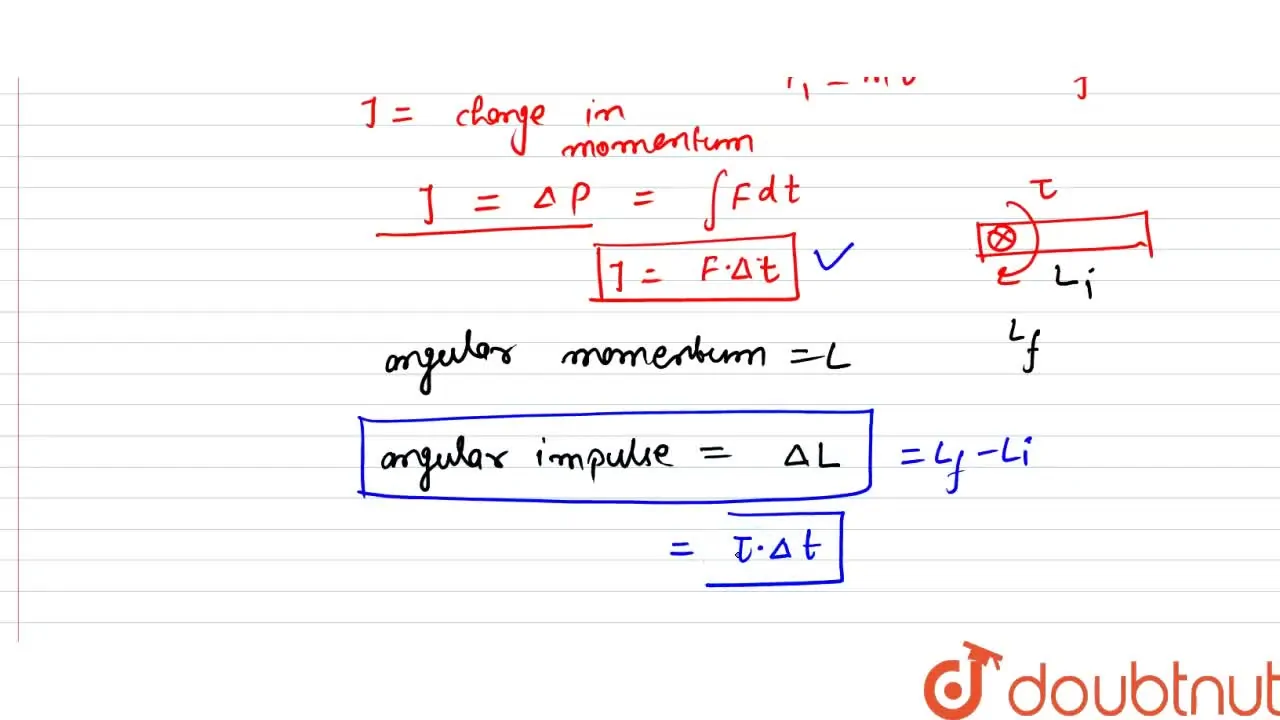 J = change in
momentum
J = ΔP = ∫F dt
τ
J = F·Δt ✓
Li
Lf
angular momentum = L
angular impulse = ΔL = Lf - Li
= τ·Δt
doubtnut